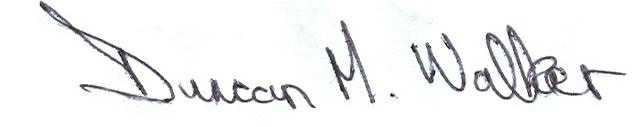 Duncan M. Walker